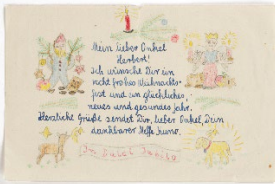 Mein lieber Onkel
Herbert!
Ich wünsche Dir ein
recht frohes Weihnachts-
fest und ein glückliches,
neues und gesundes Jahr.
Herzliche Grüße sendet Dir, lieber Onkel, Dein
dankbarer Neffe Kuno.